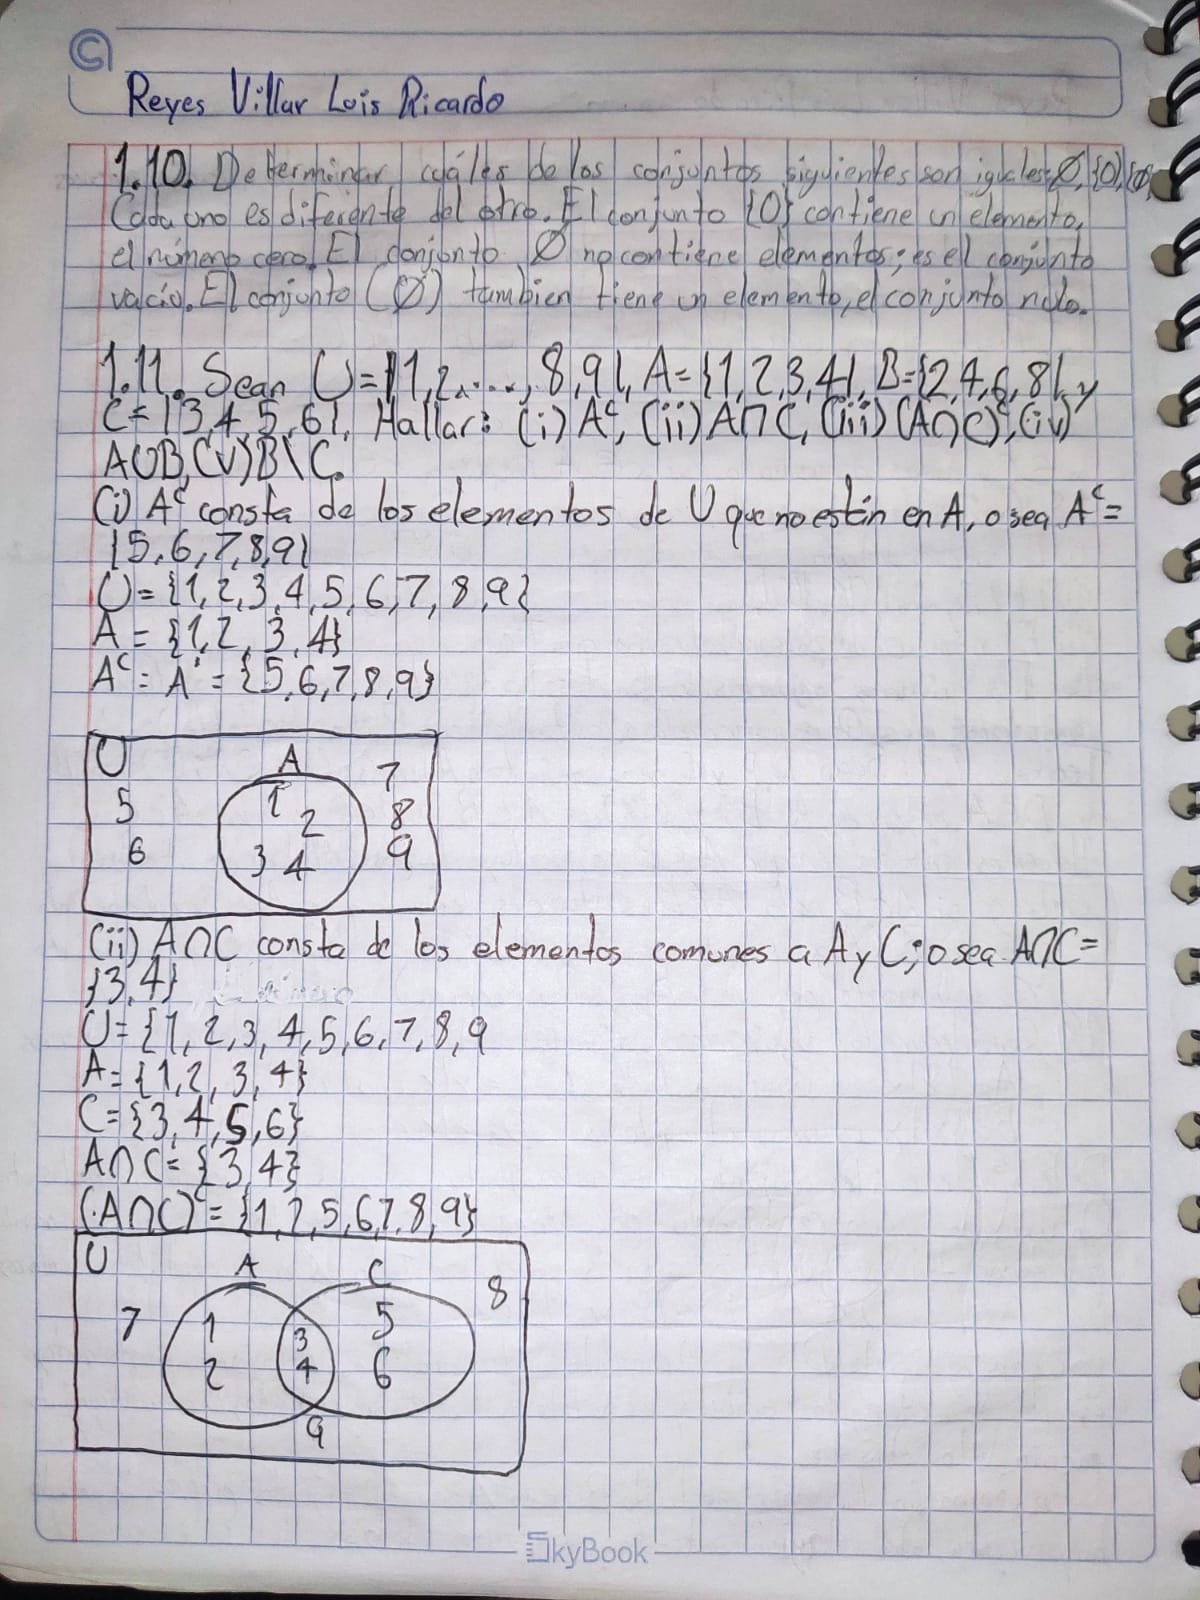 Reyes Villar Luis Ricardo
1.10. Determinar cuáles de los conjuntos siguientes son iguales: ∅, {0}, {∅}
Cada uno es diferente del otro. El conjunto {0} contiene un elemento,
el número cero. El conjunto ∅ no contiene elementos; es el conjunto
vacío. El conjunto (∅) tambien tiene un elemento, el conjunto nulo.
1.11. Sean U={1,2,...,8,9}, A={1,2,3,4}, B={2,4,6,8} y
C={3,4,5,6}. Hallar: (i) Aᶜ, (ii) A∩C, (iii) (A∩C)ᶜ, (iv)
A∪B, (v) B\C.
(i) Aᶜ consta de los elementos de U que no están en A, o sea Aᶜ=
{5,6,7,8,9}
U={1,2,3,4,5,6,7,8,9}
A={1,2,3,4}
Aᶜ=A'={5,6,7,8,9}
U A 7
5 1 2 8
6 3 4 9
(ii) A∩C consta de los elementos comunes a A y C; o sea A∩C=
{3,4}
U={1,2,3,4,5,6,7,8,9
A={1,2,3,4}
C={3,4,5,6}
A∩C={3,4}
(A∩C)ᶜ={1,2,5,6,7,8,9}
U A C 8
7 1 3 5
2 4 6
9
SkyBook